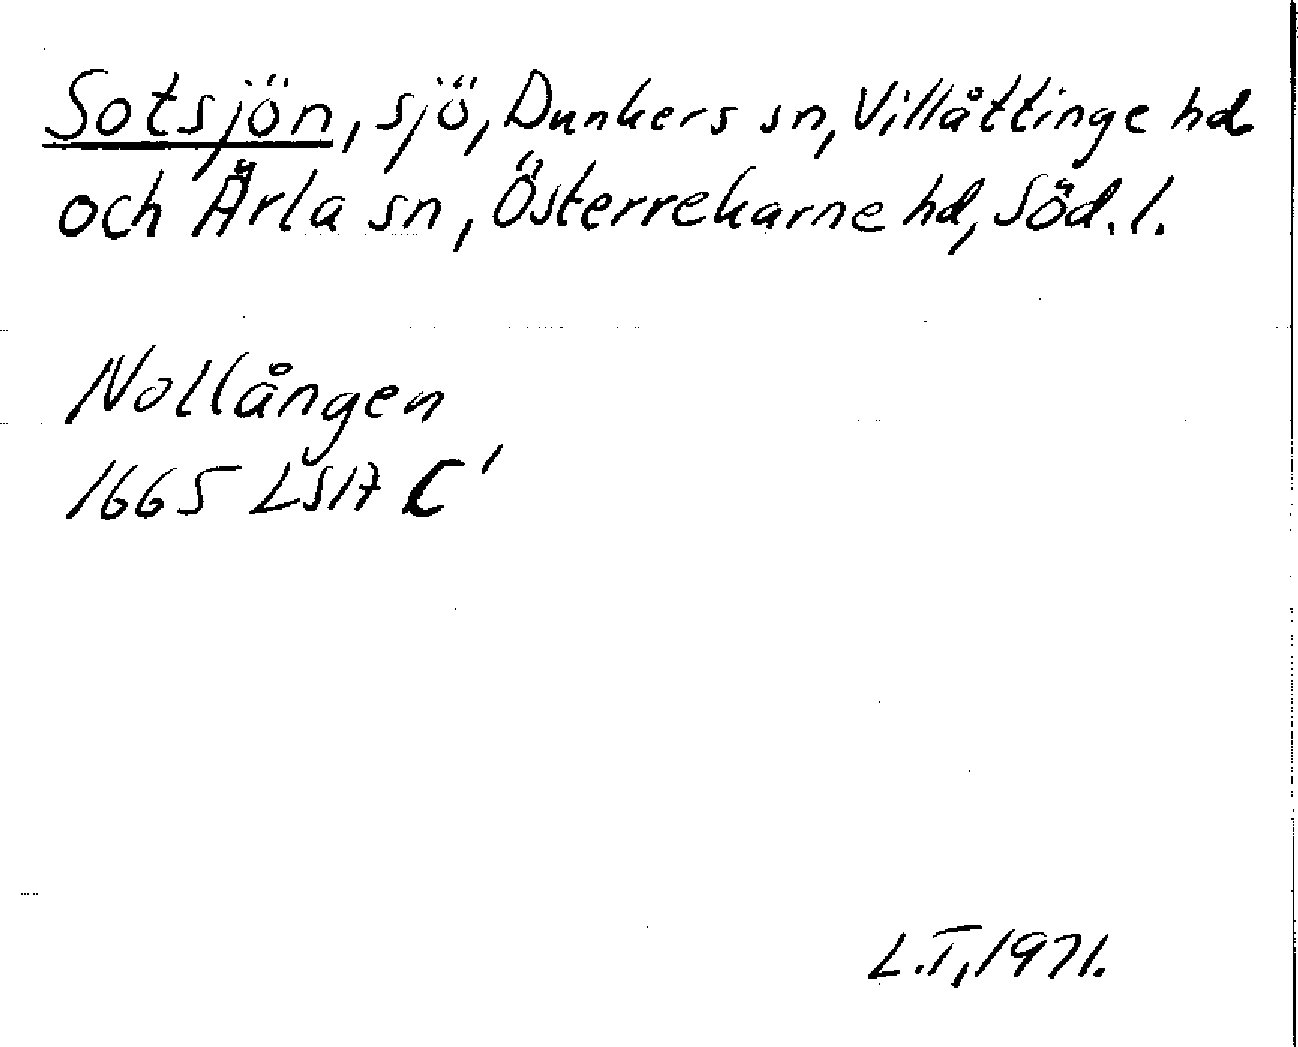 Sotsjön, sjö, Dunkers sn, Villåttinge hd
och Ärla sn, Österrekarne hd, Söd. l.
Nollången
1665 LSA C'
L.T, 1971.